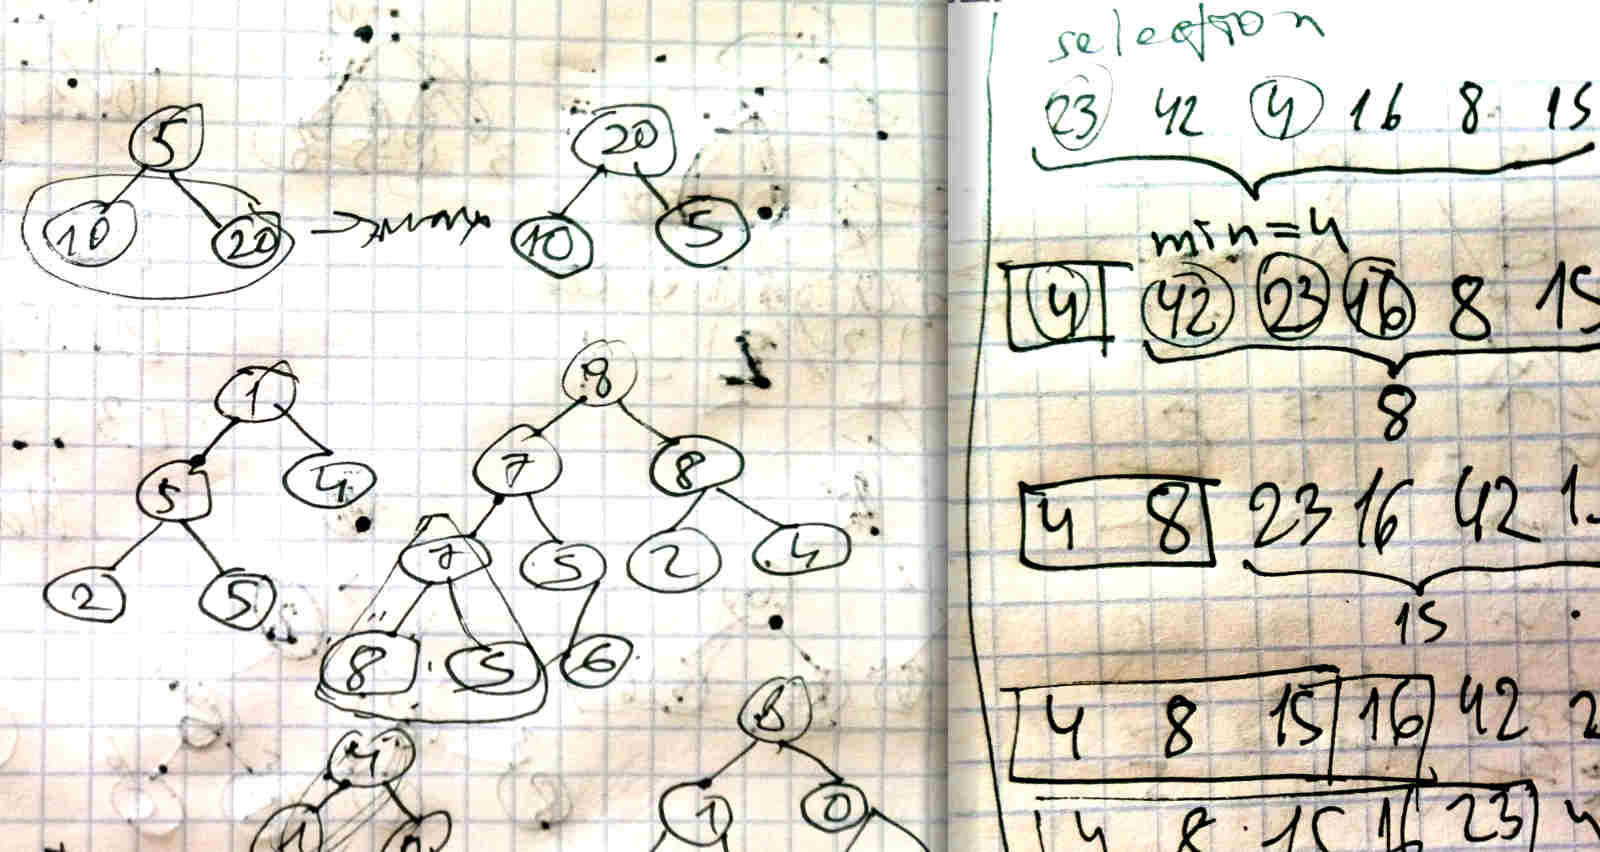 5
10 20
20
10 5
1
5 4
2 5
8
7 8
7 5 2 4
8 5 6
8
1 0
selection
23 42 4 16 8 15
min=4
4 42 23 16 8 15
8
4 8 23 16 42
15
4 8 15 16 42
4 8 15 16 23